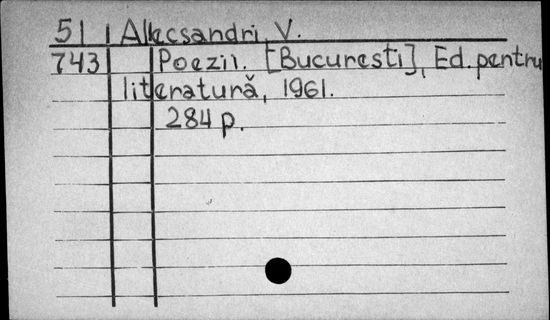 51 Alecsandri, V.
743 Poezii. [Bucuresti], Ed. pentru
literatură, 1961.
284 p.